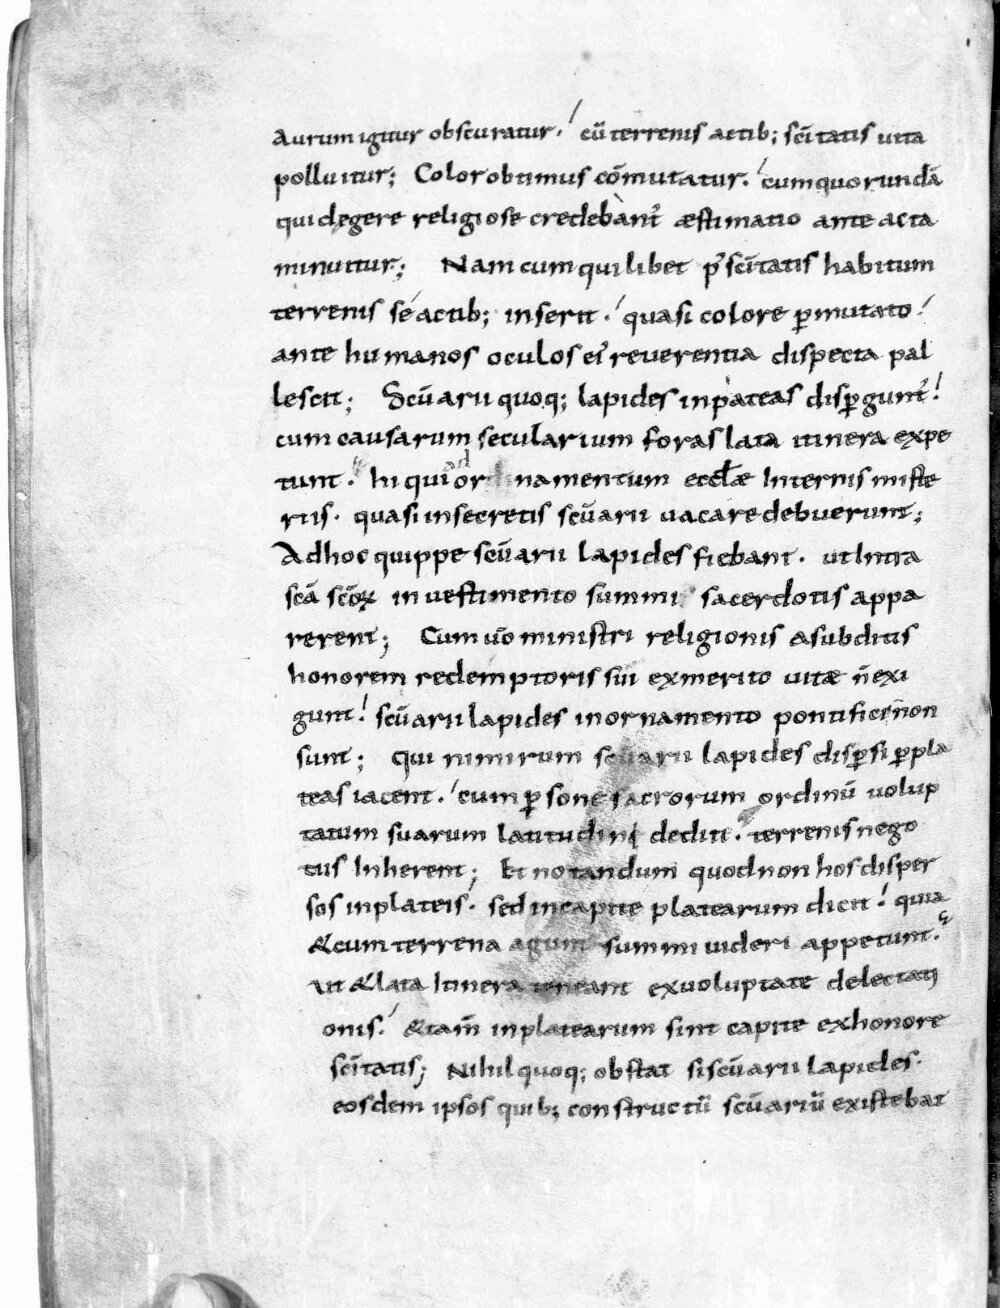 Aurum igitur obscuratur. cū terrenis actib; scītatis uita
polluitur; Color obtimus cōmutatur. cum quorundā
qui degere religiose credebant᷑ æstimatio ante acta
minuitur; Nam cum quilibet p᷑ scītatis habitum
terrenis se actib; inserit. quasi colore ꝑmutato
ante humanos oculos ei᷑ reuerentia dispecta pal
lescit; Scūarii quoq; lapides in plateas disꝑgunt᷑
cum causarum secularium foras lata itinera expe
tunt. hi qui ad ornamentum eccłæ Internis miste
riis. quasi in secretis scūarii uacare debuerunt;
Ad hoc quippe scūarii lapides fiebant. ut Intra
scā scōꝝ in uestimento summi sacerdotis appa
rerent; Cum ūo ministri religionis a subditis
honorem redemptoris sui ex merito uitæ n̄ exi
gunt. scūarii lapides in ornamento pontificē non
sunt; Qui nimirum scūarii lapides disꝑsi ꝑ pla
teas iacent. cum ꝑsone sacrorum ordinū uolup
tatum suarum latitudini dediti. terrenis nego
tiis Inherent; Et notandum quod non hos disper
sos in plateis. sed in capite platearum dicit. quia
& cum terrena agunt summi uideri appetunt.
ut & lata Itinera teneant ex uoluptate delectati
onis. & tam̄ in platearum sint capite ex honore
scītatis; Nihil quoq; obstat si scūarii lapides.
eosdem ipsos quib; constructū scūariū existebat